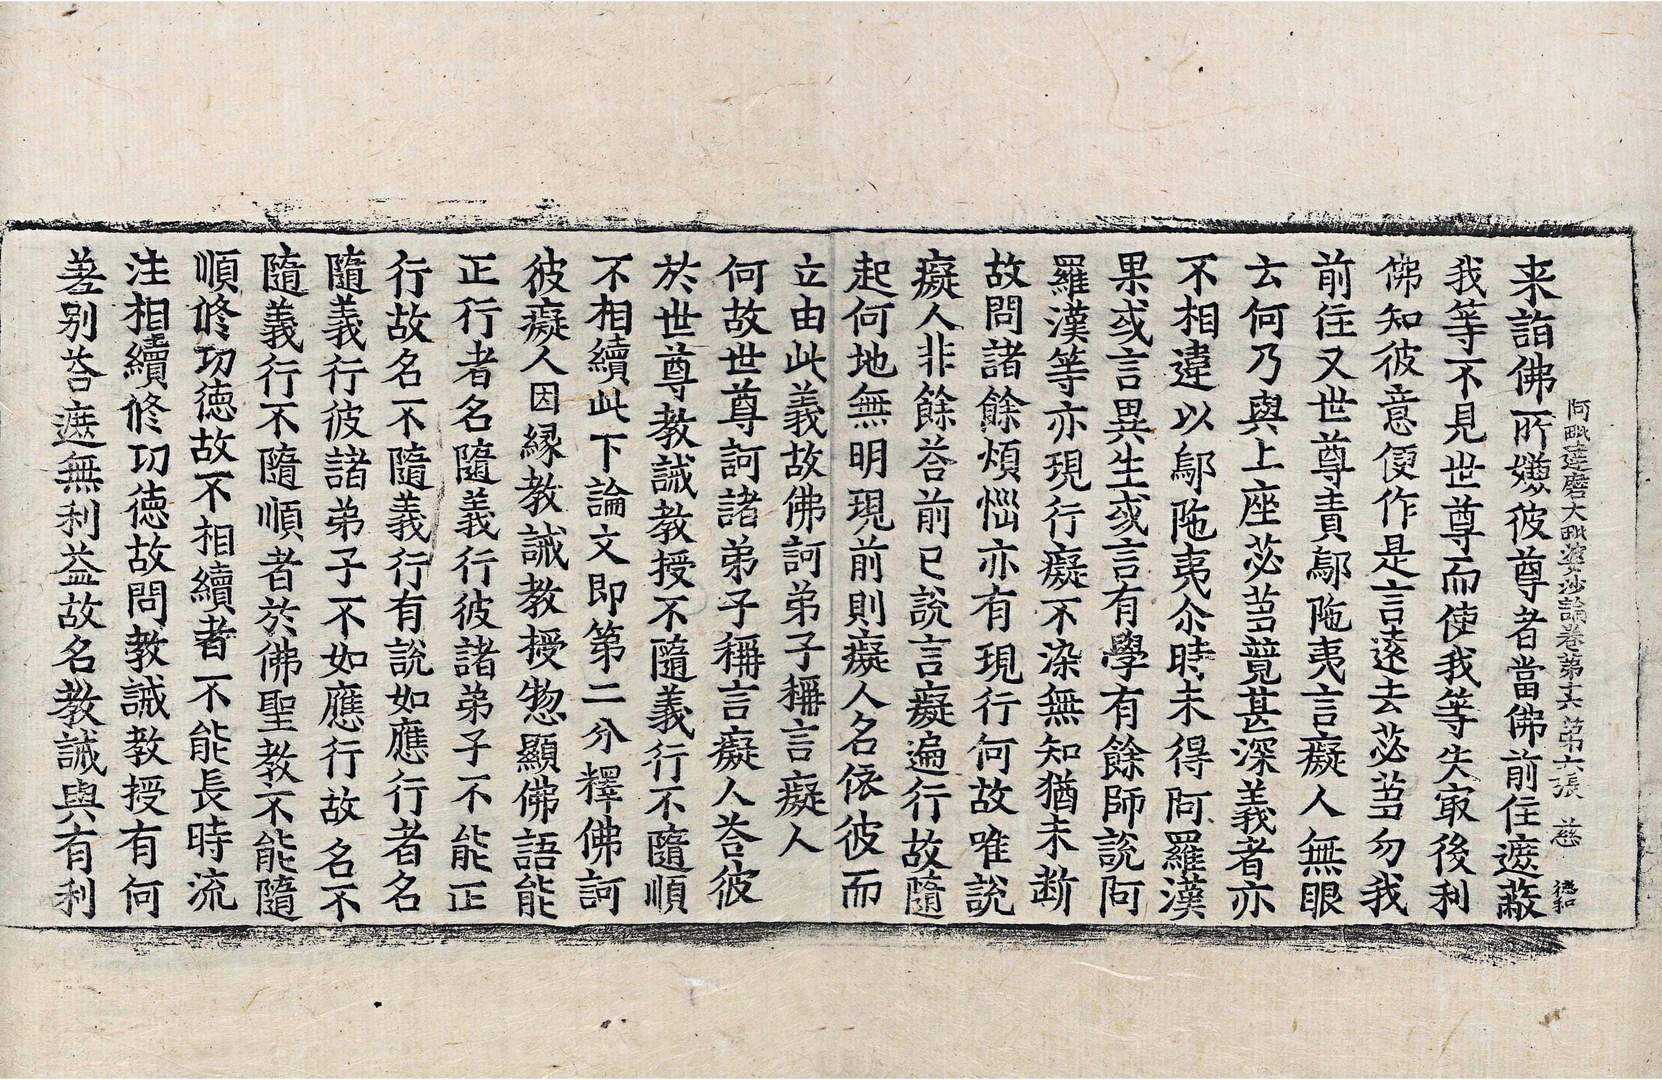 阿毗達磨大毗婆沙論卷第十六 第六張 慈 德和
来詣佛所嫌彼尊者當佛前住遮蔽
我等不見世尊而使我等失㝡後利
佛知彼意便作是言遠去苾芻勿我
前住又世尊責鄔陁夷言癡人無眼
云何乃與上座苾芻競甚深義者亦
不相違以鄔陁夷尒時未得阿羅漢
果或言異生或言有學有餘師說阿
羅漢等亦現行癡不染無知猶未断
故問諸餘煩惱亦有現行何故唯說
癡人非餘荅前已說言癡遍行故隨
起何地無明現前則癡人名依彼而
立由此義故佛訶弟子稱言癡人
何故世尊訶諸弟子稱言癡人荅彼
於世尊教誡教授不隨義行不隨順
不相續此下論文即第二分釋佛訶
彼癡人因縁教誡教授惣顯佛語能
正行者名隨義行彼諸弟子不能正
行故名不隨義行有說如應行者名
隨義行彼諸弟子不如應行故名不
隨義行不隨順者於佛聖教不能隨
順修功徳故不相續者不能長時流
注相續修功徳故問教誡教授有何
差別荅遮無利益故名教誡與有利